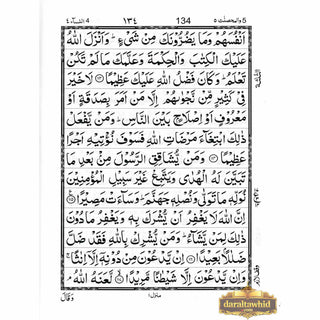 والمحصنت ٥ 134 ١٣٤ النسآء ٤
اَنْفُسَهُمْ وَمَا يَضُرُّوْنَكَ مِنْ شَيْءٍ ؕ وَاَنْزَلَ اللّٰهُ
عَلَيْكَ الْكِتٰبَ وَالْحِكْمَةَ وَعَلَّمَكَ مَا لَمْ تَكُنْ
تَعْلَمُ ؕ وَكَانَ فَضْلُ اللّٰهِ عَلَيْكَ عَظِيْمًا ۝ لَا خَيْرَ
فِيْ كَثِيْرٍ مِّنْ نَّجْوٰىهُمْ اِلَّا مَنْ اَمَرَ بِصَدَقَةٍ اَوْ
مَعْرُوْفٍ اَوْ اِصْلَاحٍۭ بَيْنَ النَّاسِ ؕ وَمَنْ يَّفْعَلْ
ذٰلِكَ ابْتِغَآءَ مَرْضَاتِ اللّٰهِ فَسَوْفَ نُؤْتِيْهِ اَجْرًا
عَظِيْمًا ۝ وَمَنْ يُّشَاقِقِ الرَّسُوْلَ مِنْۢ بَعْدِ مَا
تَبَيَّنَ لَهُ الْهُدٰى وَيَتَّبِعْ غَيْرَ سَبِيْلِ الْمُؤْمِنِيْنَ
نُوَلِّهٖ مَا تَوَلّٰى وَنُصْلِهٖ جَهَنَّمَ ؕ وَسَآءَتْ مَصِيْرًا ۝
اِنَّ اللّٰهَ لَا يَغْفِرُ اَنْ يُّشْرَكَ بِهٖ وَيَغْفِرُ مَا دُوْنَ
ذٰلِكَ لِمَنْ يَّشَآءُ ؕ وَمَنْ يُّشْرِكْ بِاللّٰهِ فَقَدْ ضَلَّ
ضَلٰلًۢا بَعِيْدًا ۝ اِنْ يَّدْعُوْنَ مِنْ دُوْنِهٖۤ اِلَّاۤ اِنٰثًا ۚ
وَاِنْ يَّدْعُوْنَ اِلَّا شَيْطٰنًا مَّرِيْدًا ۝ لَّعَنَهُ اللّٰهُ ۘ
وَقَالَ
daraltawhid